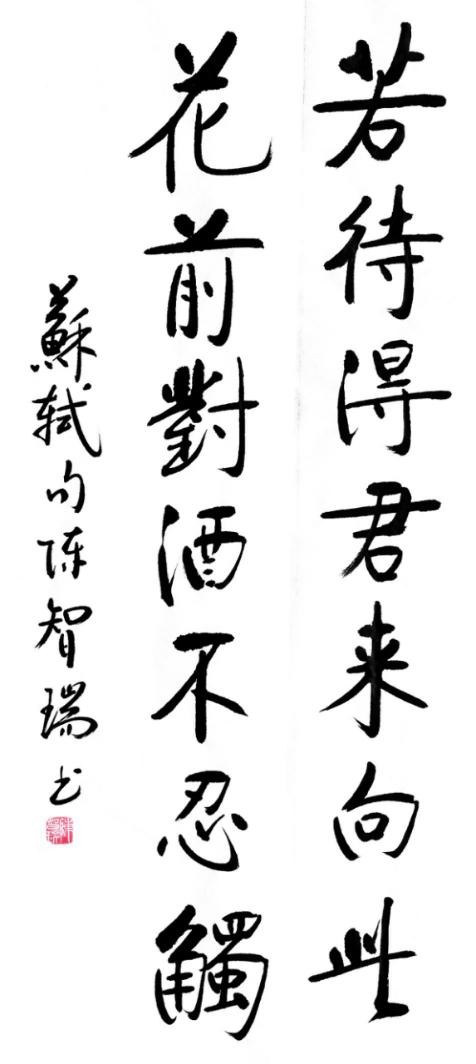 若待得君来向此
花前對酒不忍觸
蘇軾句陈智瑞书